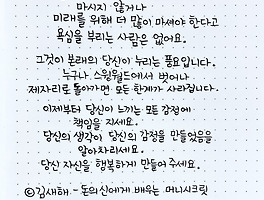 마시지 않거나
미래를 위해 더 많이 마셔야 한다고
욕심을 부리는 사람은 없어요.
그것이 본래의 당신이 누리는 풍요입니다.
누구나 스윌월드에서 벗어나
제자리로 돌아가면 모든 한계가 사라집니다.
이제부터 당신이 느끼는 모든 감정에
책임을 지세요.
당신의 생각이 당신의 감정을 만들었음을
알아차리세요.
당신 자신을 행복하게 만들어 주세요.
ⓒ김새해 - 돈의 신에게 배우는 머니시크릿